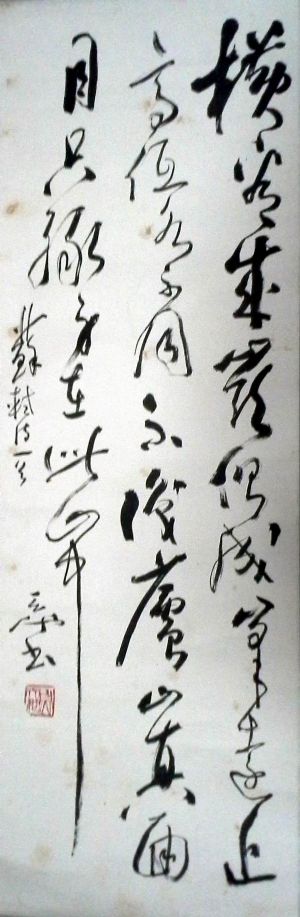 橫看成嶺側成峯遠近
高低各不同不識廬山真面
目只緣身在此山中
蘇軾詩一首
書